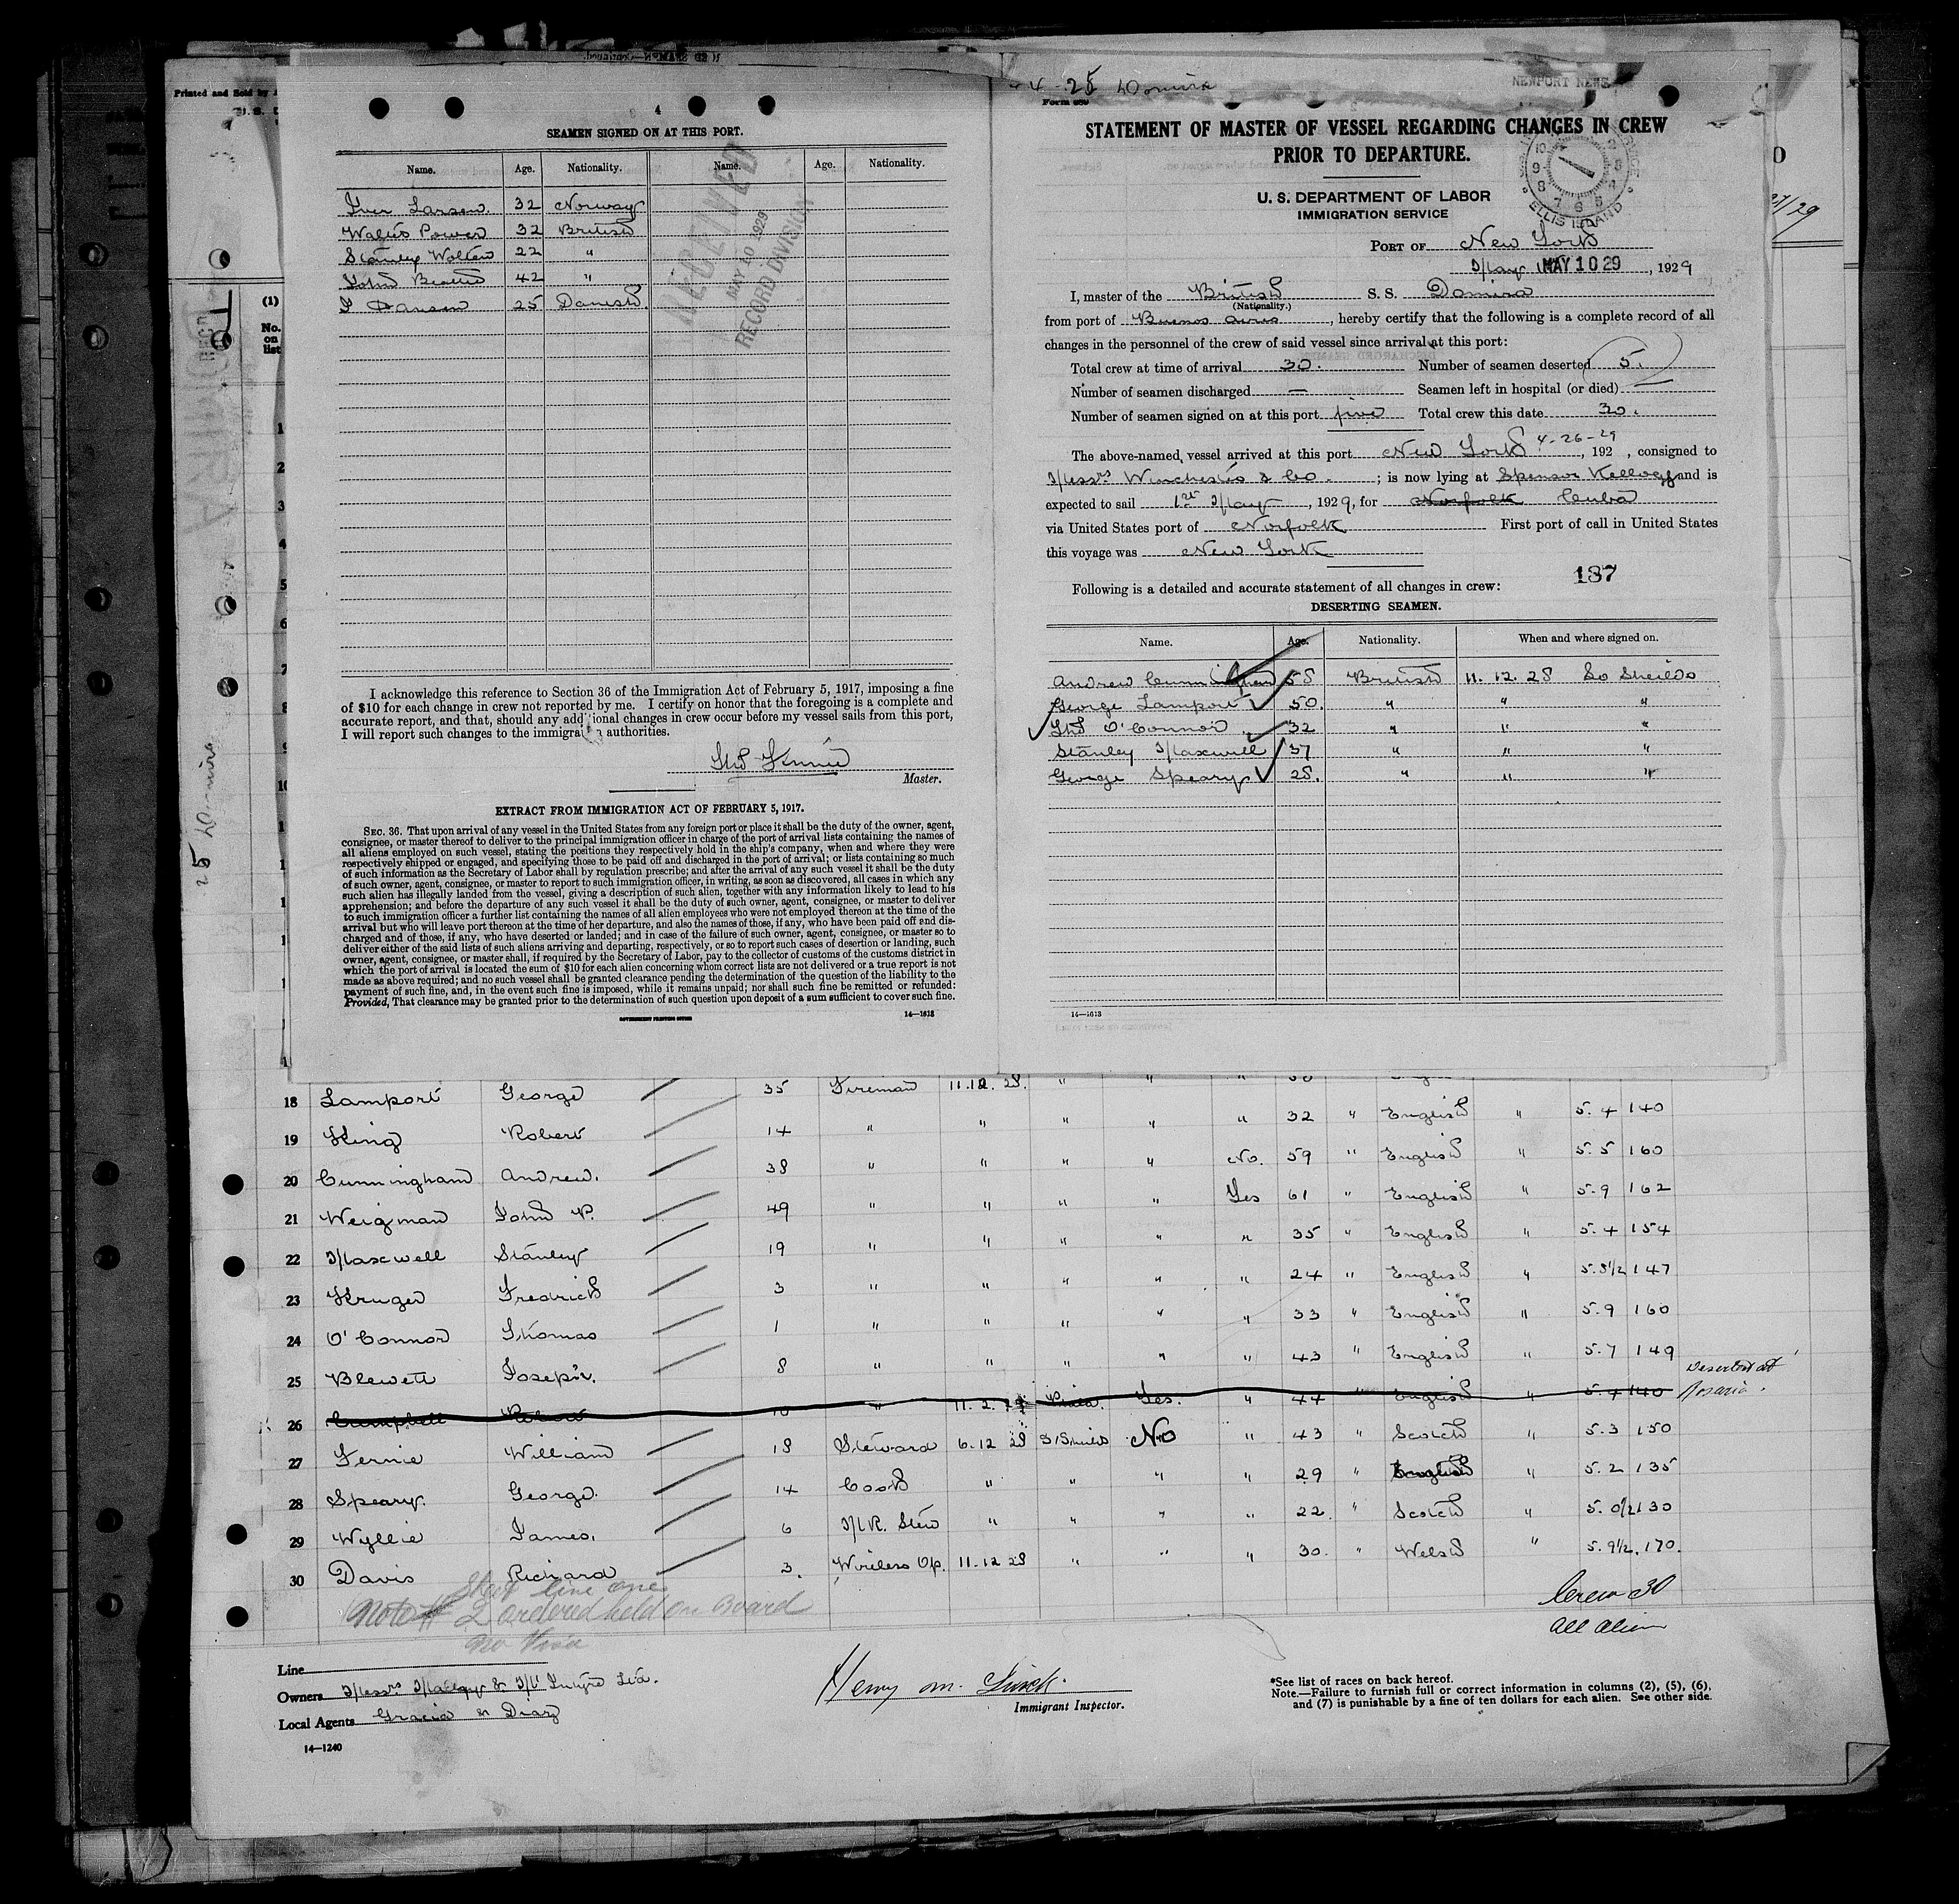 4
SEAMEN SIGNED ON AT THIS PORT.
Name. Age. Nationality. Name. Age. Nationality.
Iver Larsen. 32 Norway
Walter Power 32 British
Stanley Wolten 22 "
John Beattie 42 "
J Hansen 25 Danish.
RECEIVED
MAY 10 1929
RECORD DIVISION
I acknowledge this reference to Section 36 of the Immigration Act of February 5, 1917, imposing a fine
of $10 for each change in crew not reported by me. I certify on honor that the foregoing is a complete and
accurate report, and that, should any additional changes in crew occur before my vessel sails from this port,
I will report such changes to the immigration authorities.
Master.
EXTRACT FROM IMMIGRATION ACT OF FEBRUARY 5, 1917.
SEC. 36. That upon arrival of any vessel in the United States from any foreign port or place it shall be the duty of the owner, agent,
consignee, or master thereof to deliver to the principal immigration officer in charge of the port of arrival lists containing the names of
all aliens employed on such vessel, stating the positions they respectively hold in the ship's company, when and where they were
respectively shipped or engaged, and specifying those to be paid off and discharged in the port of arrival; or lists containing so much
of such information as the Secretary of Labor shall by regulation prescribe; and after the arrival of any such vessel it shall be the duty
of such owner, agent, consignee, or master to report to such immigration officer, in writing, as soon as discovered, all cases in which any
such alien has illegally landed from the vessel, giving a description of such alien, together with any information likely to lead to his
apprehension; and before the departure of any such vessel it shall be the duty of such owner, agent, consignee, or master to deliver
to such immigration officer a further list containing the names of all alien employees who were not employed thereon at the time of the
arrival but who will leave port thereon at the time of her departure, and also the names of those, if any, who have been paid off and dis-
charged and of those, if any, who have deserted or landed; and in case of the failure of such owner, agent, consignee, or master so to
deliver either of the said lists of such aliens arriving and departing, respectively, or so to report such cases of desertion or landing, such
owner, agent, consignee, or master shall, if required by the Secretary of Labor, pay to the collector of customs of the customs district in
which the port of arrival is located the sum of $10 for each alien concerning whom correct lists are not delivered or a true report is not
made as above required; and no such vessel shall be granted clearance pending the determination of the question of the liability to the
payment of such fine, and, in the event such fine is imposed, while it remains unpaid; nor shall such fine be remitted or refunded:
Provided, That clearance may be granted prior to the determination of such question upon deposit of a sum sufficient to cover such fine.
GOVERNMENT PRINTING OFFICE 14—1613
4-25 Domira
NEWPORT NEWS
Form 689
STATEMENT OF MASTER OF VESSEL REGARDING CHANGES IN CREW
PRIOR TO DEPARTURE.
U. S. DEPARTMENT OF LABOR
IMMIGRATION SERVICE
ELLIS ISLAND
PORT OF New York
May MAY 10 29, 1929
I, master of the British S. S. Domira
(Nationality.)
from port of Buenos Aires, hereby certify that the following is a complete record of all
changes in the personnel of the crew of said vessel since arrival at this port:
Total crew at time of arrival 30. Number of seamen deserted 5.
Number of seamen discharged — Seamen left in hospital (or died) —
Number of seamen signed on at this port five Total crew this date 30.
The above-named vessel arrived at this port New York 4-26-29, 192 , consigned to
Messrs Winchester & Co. ; is now lying at Spenser Kellogg and is
expected to sail 1st May, 1929, for Norfolk Cuba
via United States port of Norfolk First port of call in United States
this voyage was New York
187
Following is a detailed and accurate statement of all changes in crew:
DESERTING SEAMEN.
Name. Age. Nationality. When and where signed on.
Andrew Cunningham 58 British 11.12.28 So Sheilds
George Lamport 50. " " "
Thos O'Connor 32 " " "
Stanley Maxwell 37 " " "
George Speary 28. " " "
14—1613
Printed and Sold by
(1)
No.
on
list
27/29
25 Domira
18 Lamport George 35 Fireman 11.12.28. " " "
19 King Robert 14 " " " " " 32 " English " 5.4 140
20 Cunningham Andrew. 38 " " " " No. 59 " English " 5.5 160
21 Weigman John P. 49 " " " " Yes 61 " English " 5.9 162
22 Maxwell Stanley 19 " " " " " 35 " English " 5.4 154
23 Kruger Fredrick 3 " " " " " 24 " English " 5.8½ 147
24 O'Connor Thomas 1 " " " " " 33 " English " 5.9 160
25 Blewett Joseph. 8 " " " " " 43 " English " 5.7 149
26 Campbell Robert 10 " 11.2.29 Yes. " 44 " English " 5.4 140 Deserted at Rosario.
27 Fernie William 18 Steward 6.12 28 S/Shields No " 43 " Scotch " 5.3 150
28 Speary. George. 14 Cook " " " " 29 " English " 5.2 135
29 Wyllie James. 6 M.R. Stew " " " " 22. " Scotch " 5.0½ 130
30 Davis Richard 3. Wireless Op. 11.12 28 " " " 30. " Welsh " 5.9½. 170.
Sheet line one
Note # 2 ordered held on Board
no Visa
Crew 30
all alien
Line
Owners Messrs
Local Agents Gracia & Diaz
14—1240
Immigrant Inspector.
*See list of races on back hereof.
Note.—Failure to furnish full or correct information in columns (2), (5), (6),
and (7) is punishable by a fine of ten dollars for each alien. See other side.